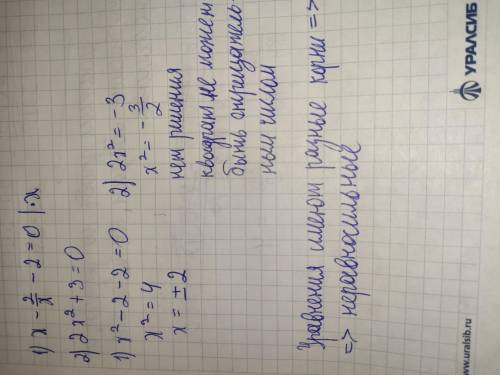 1) x - 2/x - 2 = 0 | · x
2) 2x² + 3 = 0
1) x² - 2 - 2 = 0
x² = 4
x = ± 2
2) 2x² = -3
x² = - 3/2
нет решения
квадрат не может
быть отрицатель-
ным числом
Уравнения имеют разные корни =>
=> неравносильные
УРАЛСИБ
www.uralsib.ru